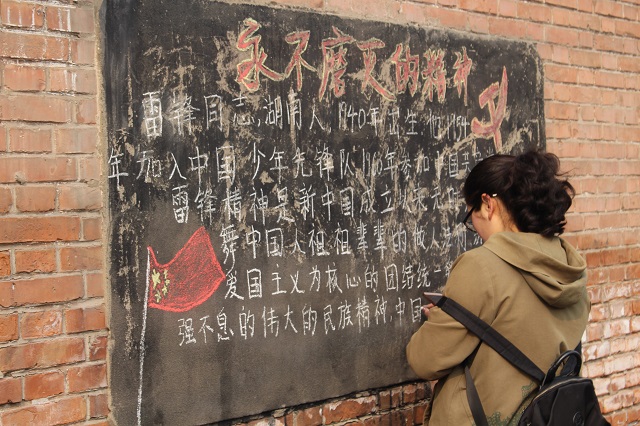 永不磨灭的精神
雷锋同志,湖南人,1940年出生,他1954
年加入中国少年先锋队,1960年参加中国
雷锋精神是新中国成立以来
舞中国人祖祖辈辈的做人
爱国主义为核心的团结统一
强不息的伟大的民族精神,中国